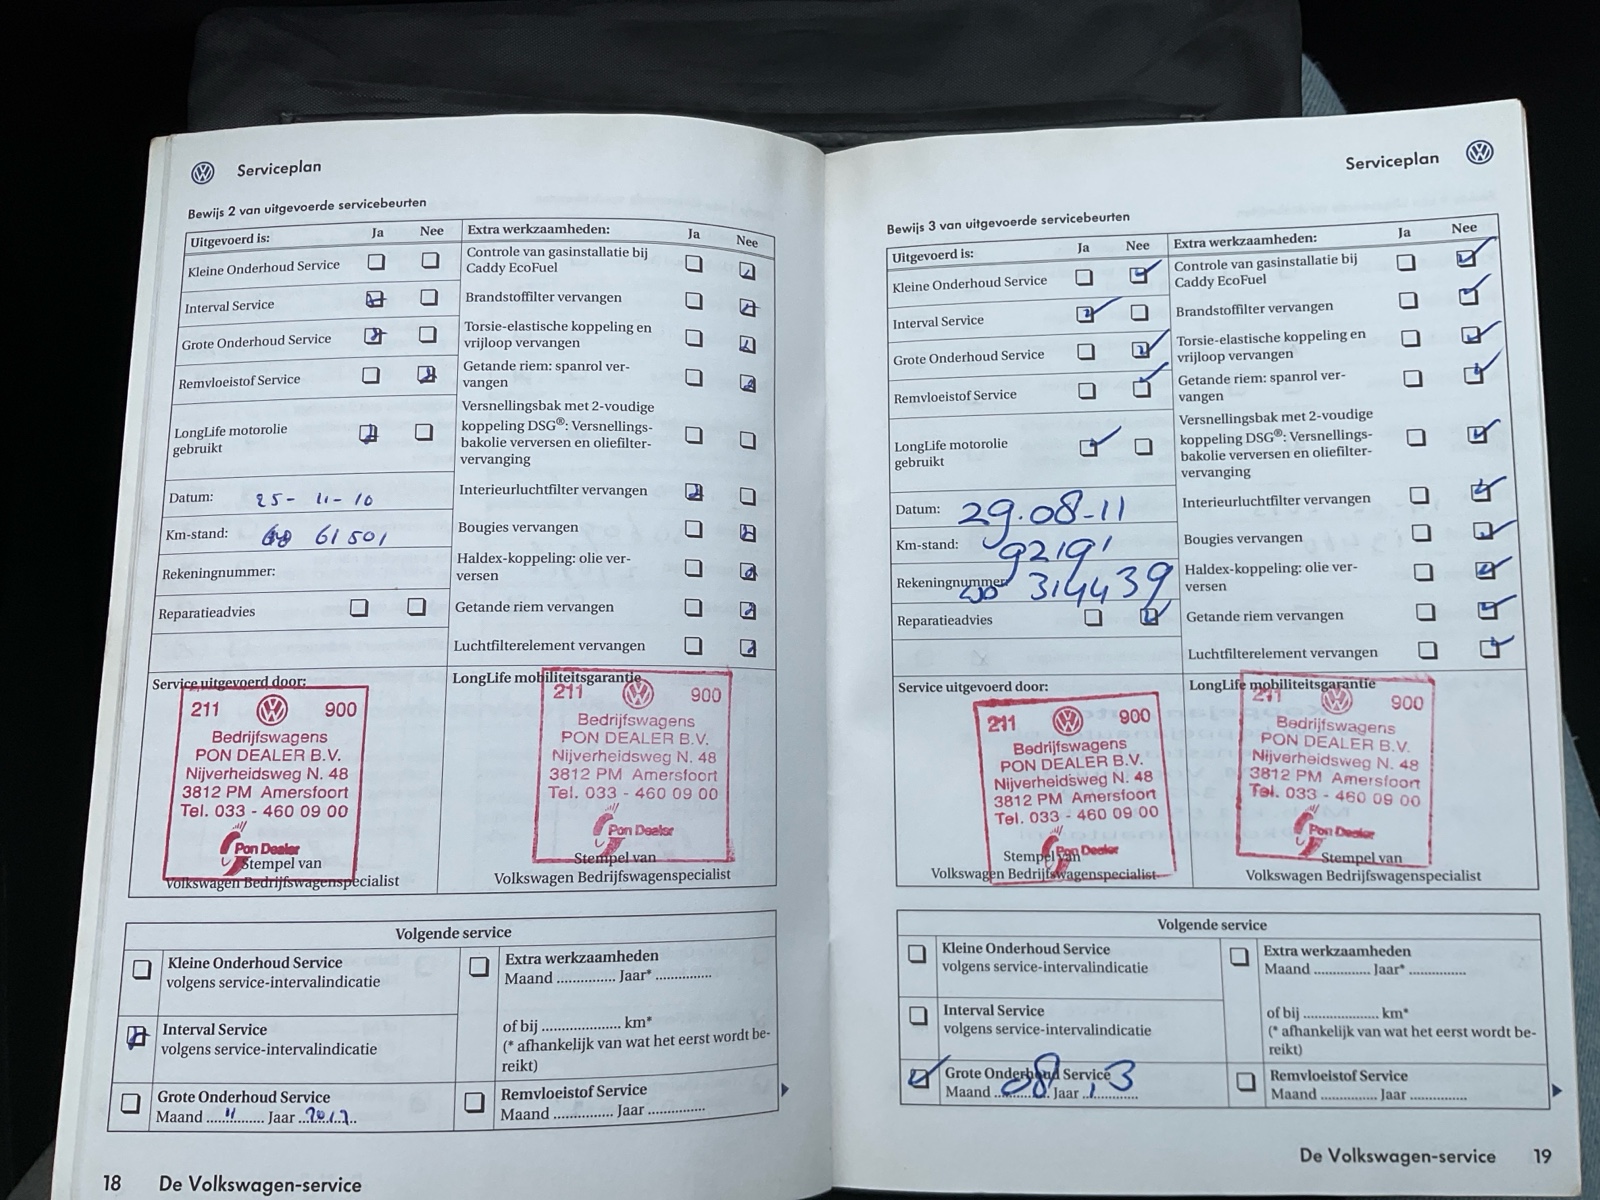 Serviceplan
Bewijs 2 van uitgevoerde servicebeurten
Uitgevoerd is: Ja Nee
Kleine Onderhoud Service
Interval Service
Grote Onderhoud Service
Remvloeistof Service
LongLife motorolie
gebruikt
Datum: 25-11-10
Km-stand: 61501
Rekeningnummer:
Reparatieadvies
Extra werkzaamheden: Ja Nee
Controle van gasinstallatie bij
Caddy EcoFuel
Brandstoffilter vervangen
Torsie-elastische koppeling en
vrijloop vervangen
Getande riem: spanrol ver-
vangen
Versnellingsbak met 2-voudige
koppeling DSG®: Versnellings-
bakolie verversen en oliefilter-
vervanging
Interieurluchtfilter vervangen
Bougies vervangen
Haldex-koppeling: olie ver-
versen
Getande riem vervangen
Luchtfilterelement vervangen
Service uitgevoerd door:
211 900
Bedrijfswagens
PON DEALER B.V.
Nijverheidsweg N. 48
3812 PM Amersfoort
Tel. 033 - 460 09 00
Pon Dealer
Stempel van
Volkswagen Bedrijfswagenspecialist
LongLife mobiliteitsgarantie
211 900
Bedrijfswagens
PON DEALER B.V.
Nijverheidsweg N. 48
3812 PM Amersfoort
Tel. 033 - 460 09 00
Pon Dealer
Stempel van
Volkswagen Bedrijfswagenspecialist
Volgende service
Kleine Onderhoud Service
volgens service-intervalindicatie
Interval Service
volgens service-intervalindicatie
Grote Onderhoud Service
Maand ...11... Jaar ...
Extra werkzaamheden
Maand ............... Jaar* ..............
of bij .................... km*
(* afhankelijk van wat het eerst wordt be-
reikt)
Remvloeistof Service
Maand .............. Jaar ..............
18 De Volkswagen-service
Serviceplan
Bewijs 3 van uitgevoerde servicebeurten
Uitgevoerd is: Ja Nee
Kleine Onderhoud Service
Interval Service
Grote Onderhoud Service
Remvloeistof Service
LongLife motorolie
gebruikt
Datum: 29.08-11
Km-stand: 92191
Rekeningnummer: WO 314439
Reparatieadvies
Extra werkzaamheden: Ja Nee
Controle van gasinstallatie bij
Caddy EcoFuel
Brandstoffilter vervangen
Torsie-elastische koppeling en
vrijloop vervangen
Getande riem: spanrol ver-
vangen
Versnellingsbak met 2-voudige
koppeling DSG®: Versnellings-
bakolie verversen en oliefilter-
vervanging
Interieurluchtfilter vervangen
Bougies vervangen
Haldex-koppeling: olie ver-
versen
Getande riem vervangen
Luchtfilterelement vervangen
Service uitgevoerd door:
211 900
Bedrijfswagens
PON DEALER B.V.
Nijverheidsweg N. 48
3812 PM Amersfoort
Tel. 033 - 460 09 00
Pon Dealer
Stempel van
Volkswagen Bedrijfswagenspecialist
LongLife mobiliteitsgarantie
211 900
Bedrijfswagens
PON DEALER B.V.
Nijverheidsweg N. 48
3812 PM Amersfoort
Tel. 033 - 460 09 00
Pon Dealer
Stempel van
Volkswagen Bedrijfswagenspecialist
Volgende service
Kleine Onderhoud Service
volgens service-intervalindicatie
Interval Service
volgens service-intervalindicatie
Grote Onderhoud Service
Maand ...08... Jaar ..13...
Extra werkzaamheden
Maand .............. Jaar* ..............
of bij ................... km*
(* afhankelijk van wat het eerst wordt be-
reikt)
Remvloeistof Service
Maand .............. Jaar ..............
De Volkswagen-service 19